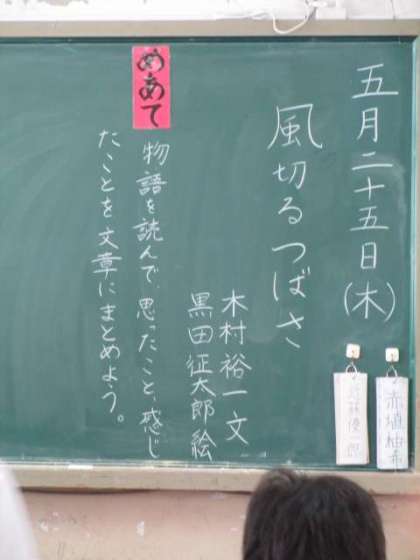 五月二十五日(木)
風切るつばさ
木村裕一文
黒田征太郎・絵
めあて
物語を読んで、思ったこと、感じ
たことを文章にまとめよう。